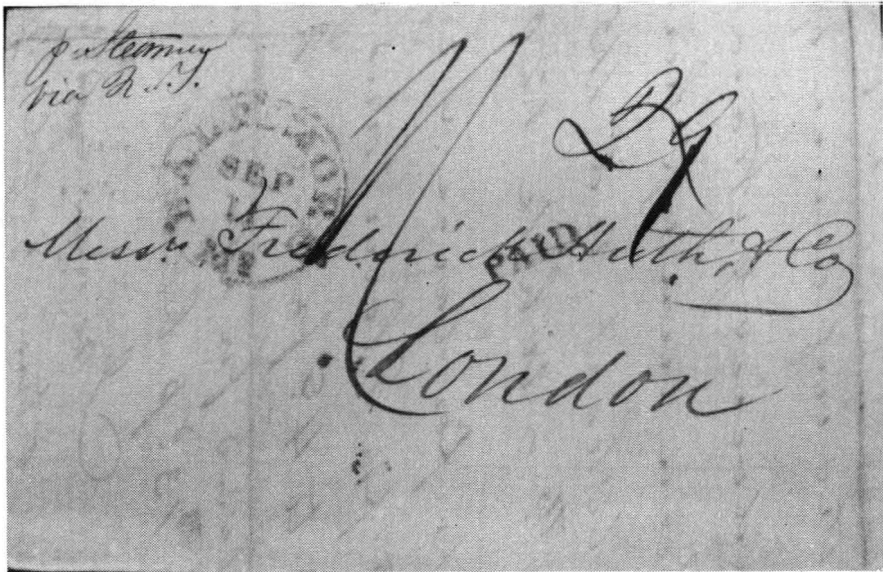 p Steamer
via N.Y.
BALTIMORE
SEP
1
MD
29
PAID
Messrs Frederick Huth & Co
London